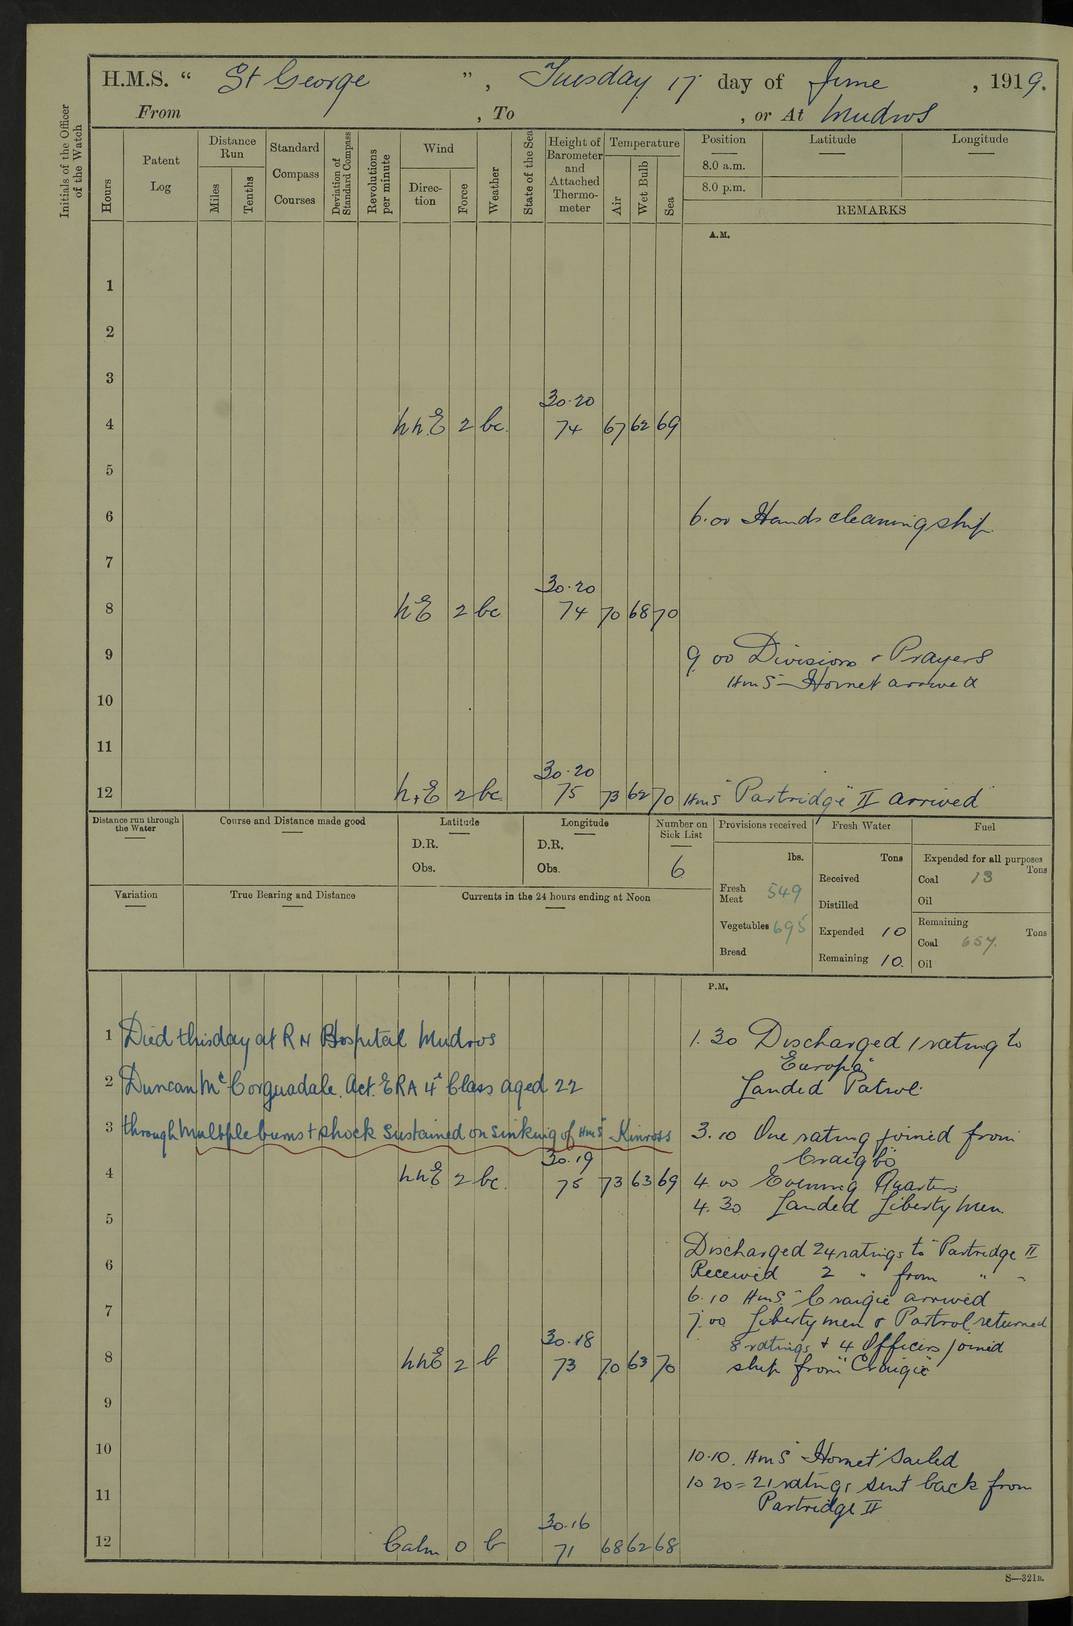 H.M.S. “ St George ”, Tuesday 17 day of June, 1919.
From , To , or At Mudros
Initials of the Officer of the Watch
Hours
Patent Log
Distance Run
Miles
Tenths
Standard Compass Courses
Deviation of Standard Compass
Revolutions per minute
Wind
Direction
Force
Weather
State of the Sea
Height of Barometer and Attached Thermometer
Temperature
Air
Wet Bulb
Sea
Position Latitude Longitude
8.0 a.m.
8.0 p.m.
REMARKS
A.M.
1
2
3
30.20
4 NNE 2 bc. 74 67 62 69
5
6 6.00 Hands cleaning ship
7
30.20
8 NE 2 bc 74 70 68 70
9 9.00 Divisions & Prayers
HMS Hornet arrived
10
11
30.20
12 N+E 2 bc 75 73 62 70 HMS "Partridge" II arrived
Distance run through the Water
Course and Distance made good
Latitude
D.R.
Obs.
Longitude
D.R.
Obs.
Number on Sick List
6
Provisions received
lbs.
Fresh Meat 549
Vegetables 695
Bread
Fresh Water
Tons
Received
Distilled
Expended 10
Remaining 10.
Fuel
Expended for all purposes
Tons
Coal 13
Oil
Remaining
Tons
Coal 657.
Oil
Variation
True Bearing and Distance
Currents in the 24 hours ending at Noon
P.M.
1 Died this day at RN Hospital Mudros 1.30 Discharged 1 rating to
Europa
2 Duncan McCorquadale. Act. ERA 4th Class aged 22 Landed Patrol.
3 through multple burns + shock sustained on sinking of HMS Kinross 3.10 One rating joined from
Craigie
30.19
4 NNE 2 bc. 75 73 63 69 4.00 Evening Quarters
4.30 Landed Liberty Men.
5
Discharged 24 ratings to "Partridge II
6 Received 2 " from " "
6.10 HMS "Craigie arrived
7 7.00 Liberty men & Partrol returned
30.18 8 ratings + 4 Officers joined
8 NNE 2 b 73 70 63 70 ship from "Craigie"
9
10 10.10. HMS "Hornet" Sailed
10 20 = 21 ratings sent back from
11 Partridge II
30.16
12 Calm 0 b 71 68 62 68
S—321B.